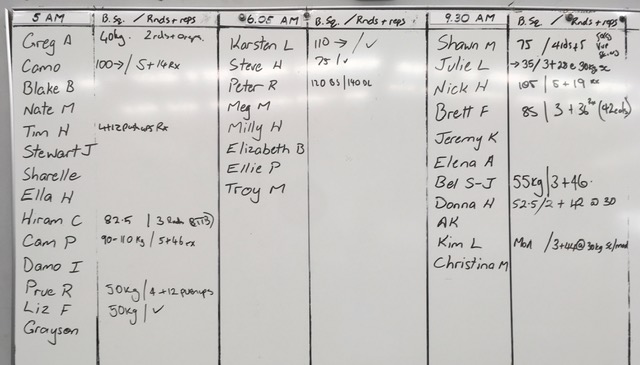 5 AM B.Sq. / Rnds + reps
Greg A 40kg. 2 rds +
Camo 100→ / 5 + 14 Rx
Blake B
Nate M
Tim H 4+12 pushups Rx
Stewart J
Sharelle
Ella H
Hiram C 82.5 / 3 Rnds
Cam P 90-110 Kg / 5+46 rx
Damo I
Prue R 50kg / 4 +12 pushups
Liz F 50kg / ✓
Grayson
6.05 AM B.Sq. / Rnds + reps
Karsten L 110 → / ✓
Steve H 75 / ✓
Peter R 120 BS / 140 DL
Meg M
Milly H
Elizabeth B
Ellie P
Troy M
9.30 AM B.Sq / Rnds + reps
Shawn M 75 / 4 rds + 5
Julie L → 35 / 3 + 28 @ 30kg sc
Nick H 105 / 5 + 19 rx
Brett F 85 / 3 + 36 (42cals)
Jeremy K
Elena A
Bel S-J 55kg / 3 + 46.
Donna H 52.5 / 2 + 42 @ 30
AK
Kim L Mod / 3+44 @ 30kg sc/mod
Christina M